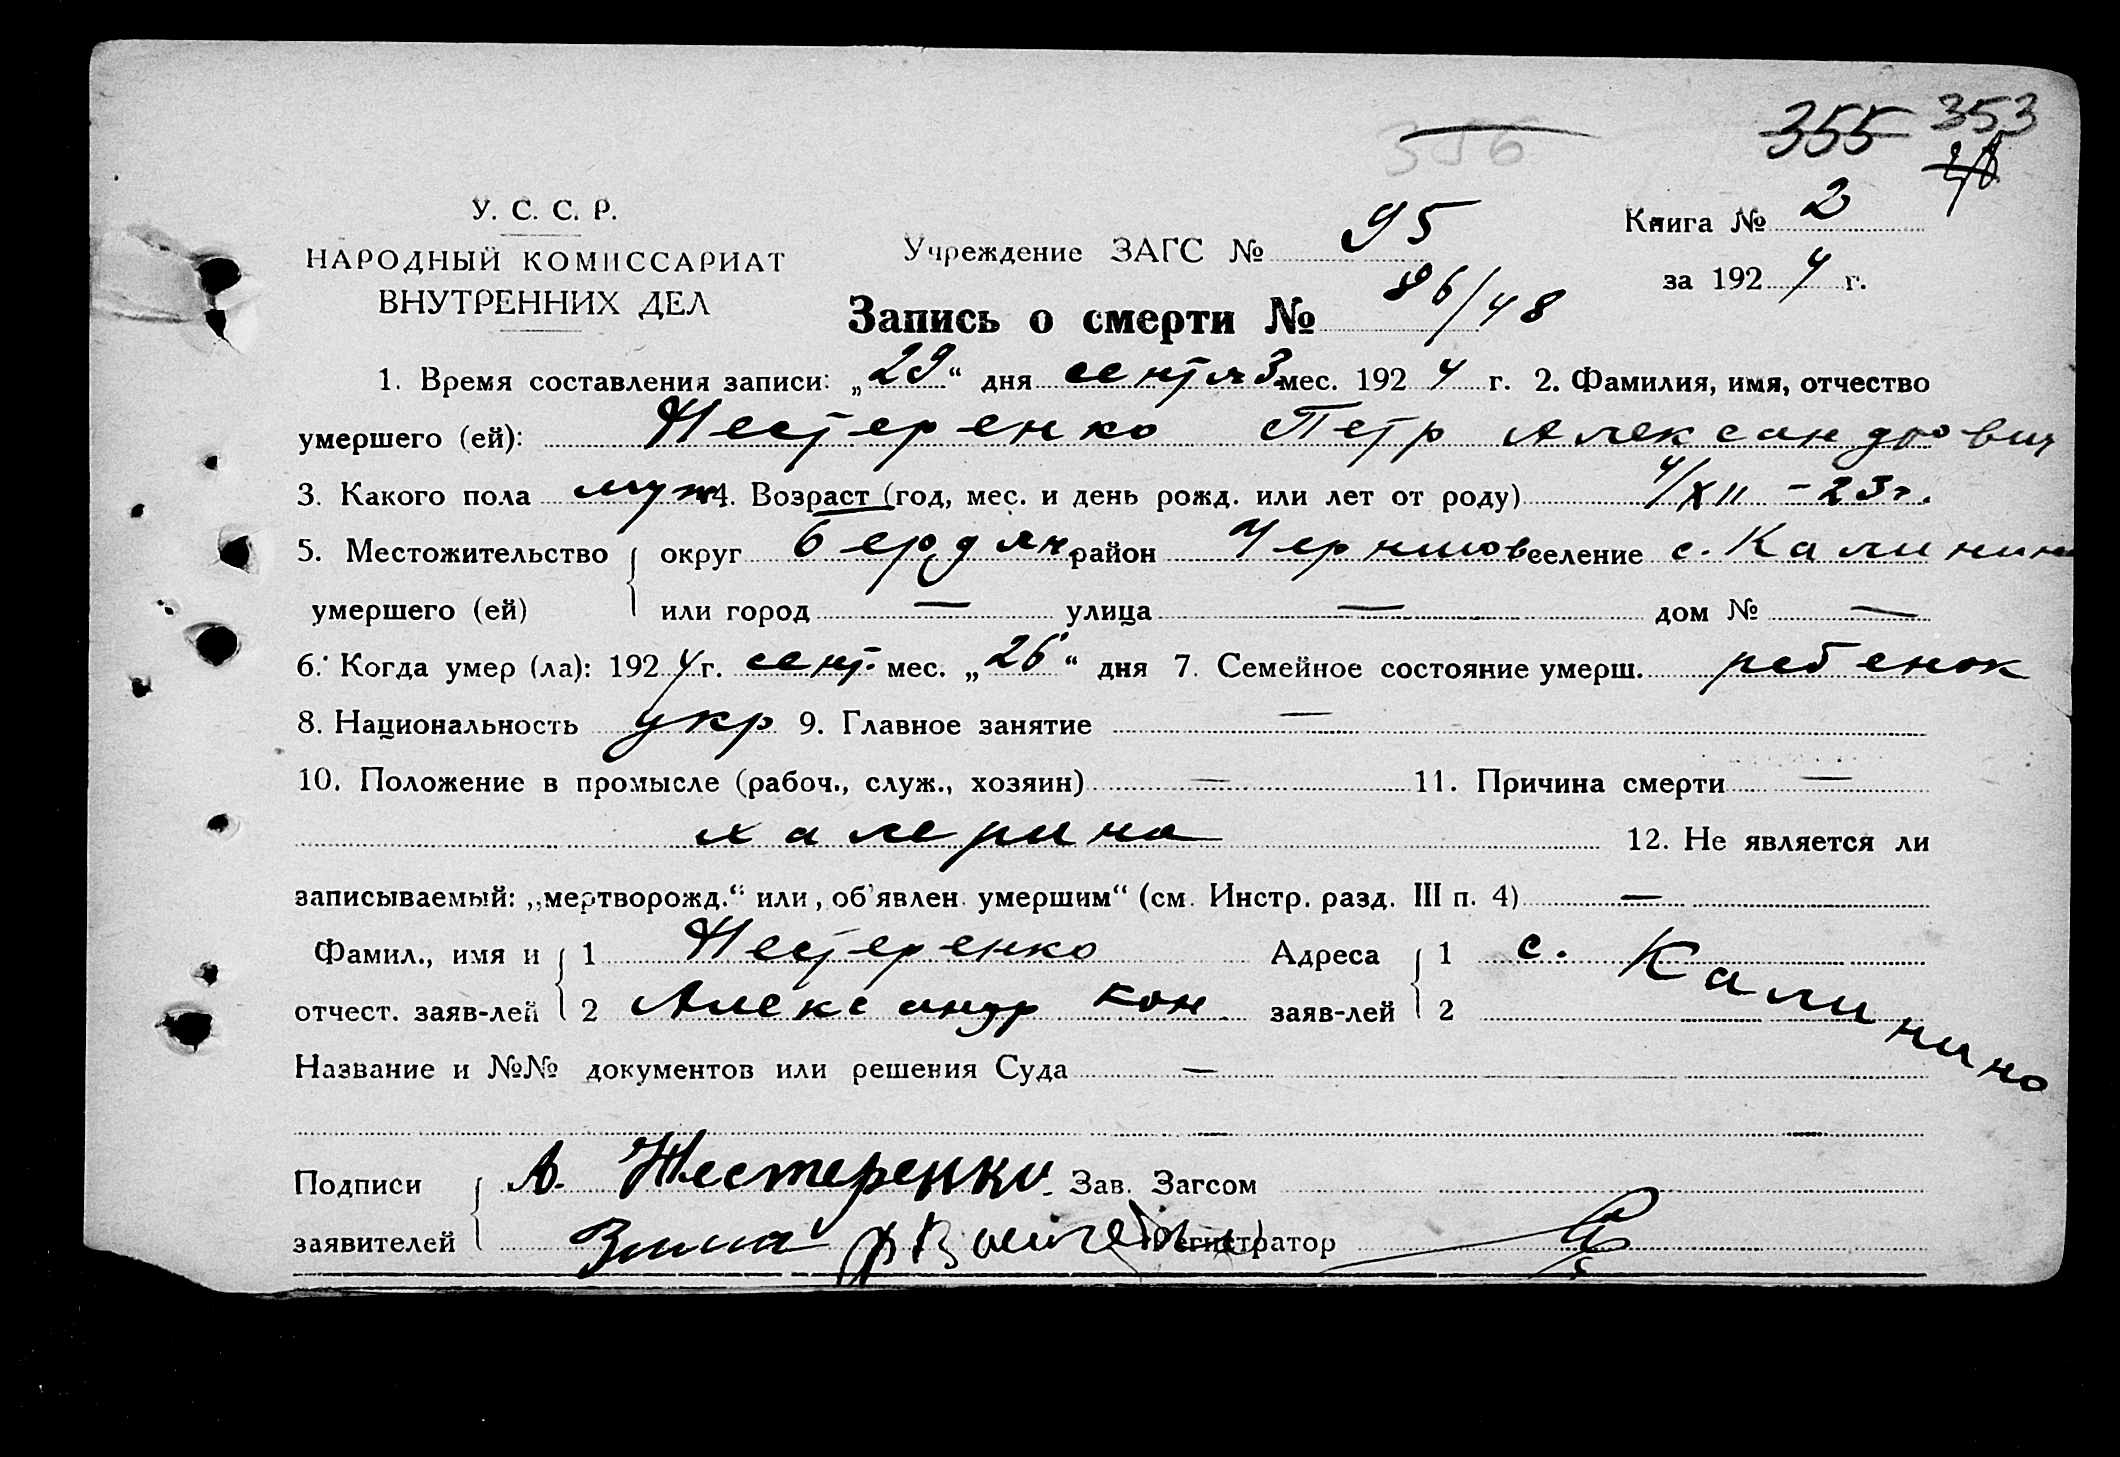 356 355 353
У. С. С. Р.
НАРОДНЫЙ КОМИССАРИАТ
ВНУТРЕННИХ ДЕЛ
Учреждение ЗАГС № 95
Книга № 2
за 1924 г.
Запись о смерти № 86/48
1. Время составления записи: „29“ дня сентяб. мес. 1924 г. 2. Фамилия, имя, отчество
умершего (ей): Нестеренко Петр Александрович
3. Какого пола муж 4. Возраст (год, мес. и день рожд. или лет от роду) 4/XII - 23 г.
5. Местожительство округ Бердян. район Черниговс селение с. Калинин
умершего (ей) или город — улица — дом № —
6. Когда умер (ла): 1924 г. сент. мес. „26“ дня 7. Семейное состояние умерш. ребенок
8. Национальность укр 9. Главное занятие —
10. Положение в промысле (рабоч., служ., хозяин) — 11. Причина смерти —
халерина 12. Не является ли
записываемый: „мертворожд.“ или „об'явлен умершим“ (см. Инстр. разд. III п. 4) —
Фамил., имя и 1 Нестеренко Адреса 1 с. Калинино
отчест. заяв-лей 2 Александр Кон. заяв-лей 2
Название и №№ документов или решения Суда —
Подписи А. Нестеренко. Зав. Загсом
заявителей Регистратор